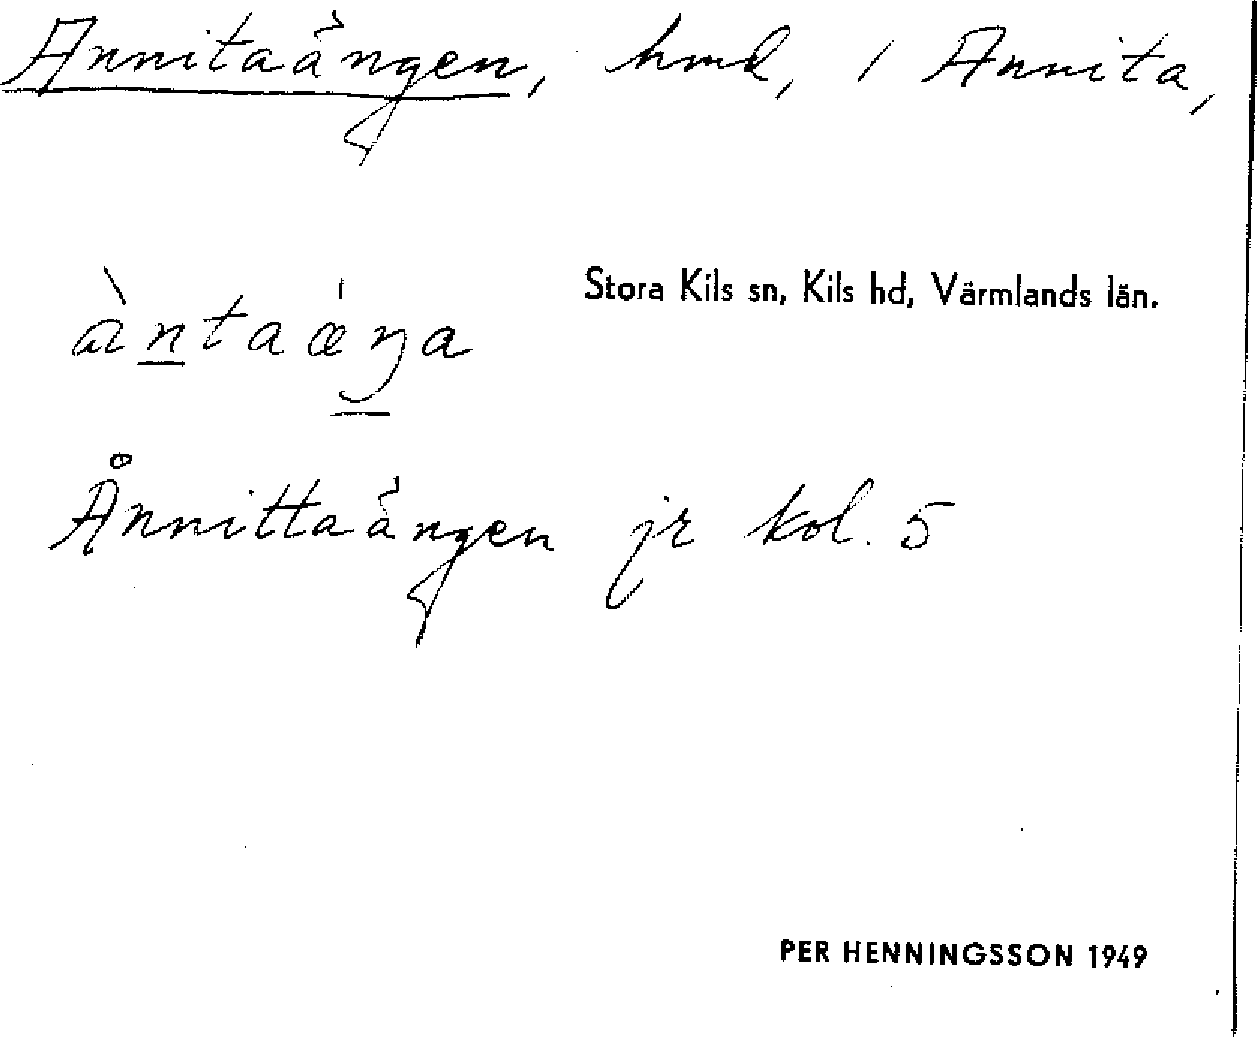 Annitaängen, hmd, i Annita,
Stora Kils sn, Kils hd, Värmlands län.
àntaǽŋa
Ånnittaängen jr kol. 5
PER HENNINGSSON 1949